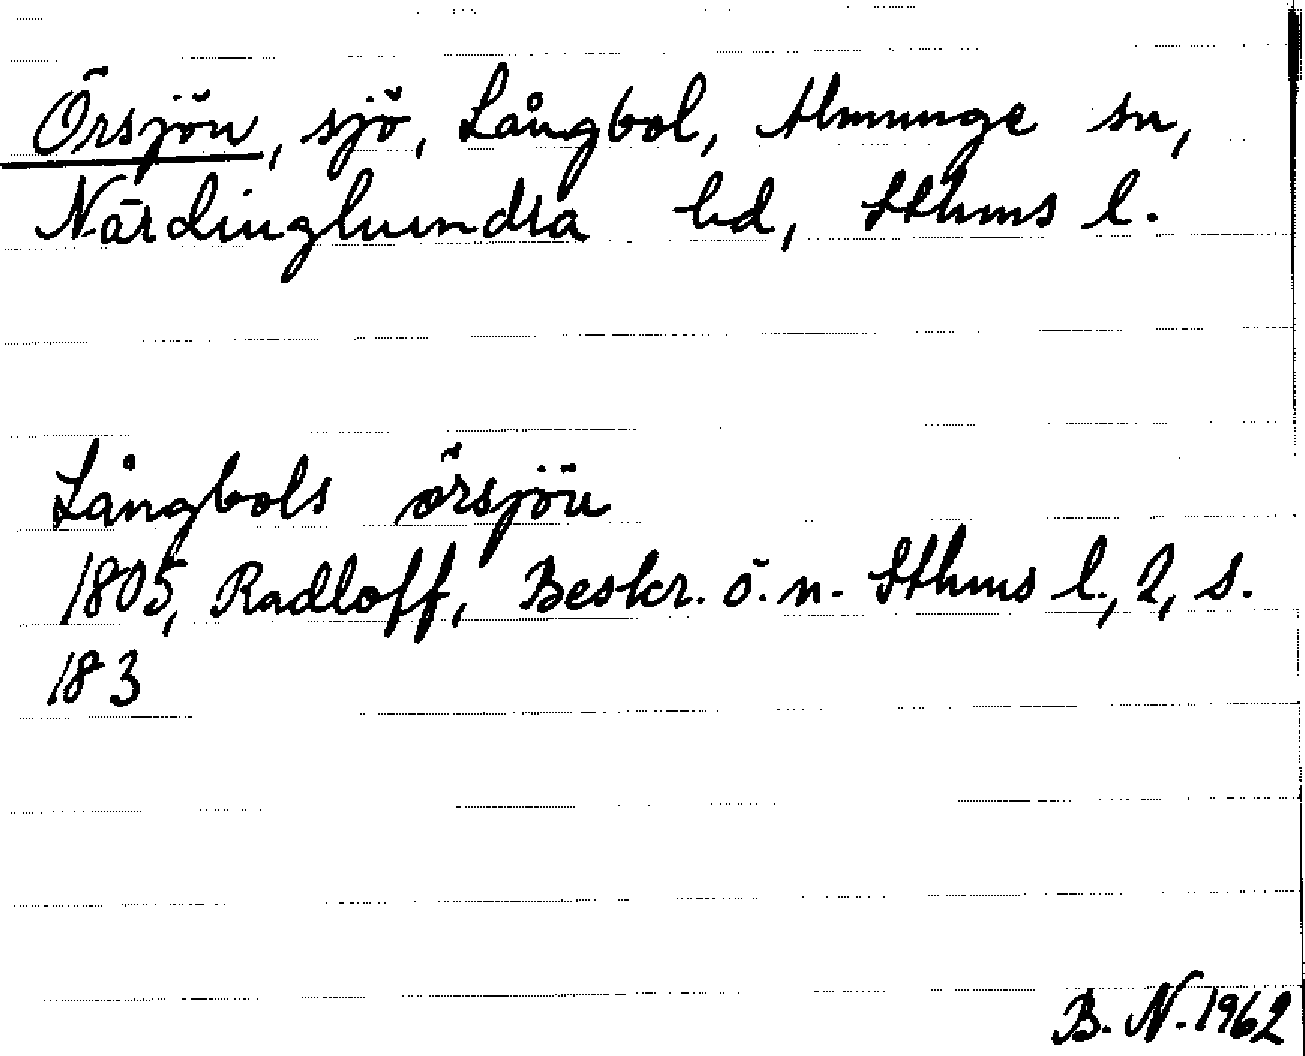 Örsjön, sjö, Långbol, Almunge sn,
Närdinghundra hd, Sthms l.
Långbols örsjön
1805, Radloff, Beskr. ö. n. Sthms l., 2, s.
183
B. N. 1962